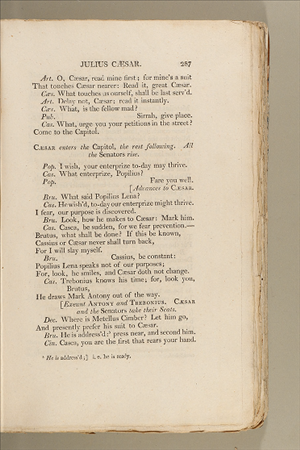 JULIUS CÆSAR. 287
Art. O, Cæsar, read mine first; for mine's a suit
That touches Cæsar nearer: Read it, great Cæsar.
Cæs. What touches us ourself, shall be last serv'd.
Art. Delay not, Cæsar; read it instantly.
Cæs. What, is the fellow mad?
Pub. Sirrah, give place.
Cas. What, urge you your petitions in the street?
Come to the Capitol.
CÆSAR enters the Capitol, the rest following. All
the Senators rise.
Pop. I wish, your enterprize to-day may thrive.
Cas. What enterprize, Popilius?
Pop. Fare you well.
[Advances to CÆSAR.
Bru. What said Popilius Lena?
Cas. He wish'd, to-day our enterprize might thrive.
I fear, our purpose is discovered.
Bru. Look, how he makes to Cæsar: Mark him.
Cas. Casca, be sudden, for we fear prevention.—
Brutus, what shall be done? If this be known,
Cassius or Cæsar never shall turn back,
For I will slay myself.
Bru. Cassius, be constant:
Popilius Lena speaks not of our purposes;
For, look, he smiles, and Cæsar doth not change.
Cas. Trebonius knows his time; for, look you,
Brutus,
He draws Mark Antony out of the way.
[Exeunt ANTONY and TREBONIUS. CÆSAR
and the Senators take their Seats.
Dec. Where is Metellus Cimber? Let him go,
And presently prefer his suit to Cæsar.
Bru. He is address'd: press near, and second him.
Cin. Casca, you are the first that rears your hand.
He is address'd;] i. e. he is ready.